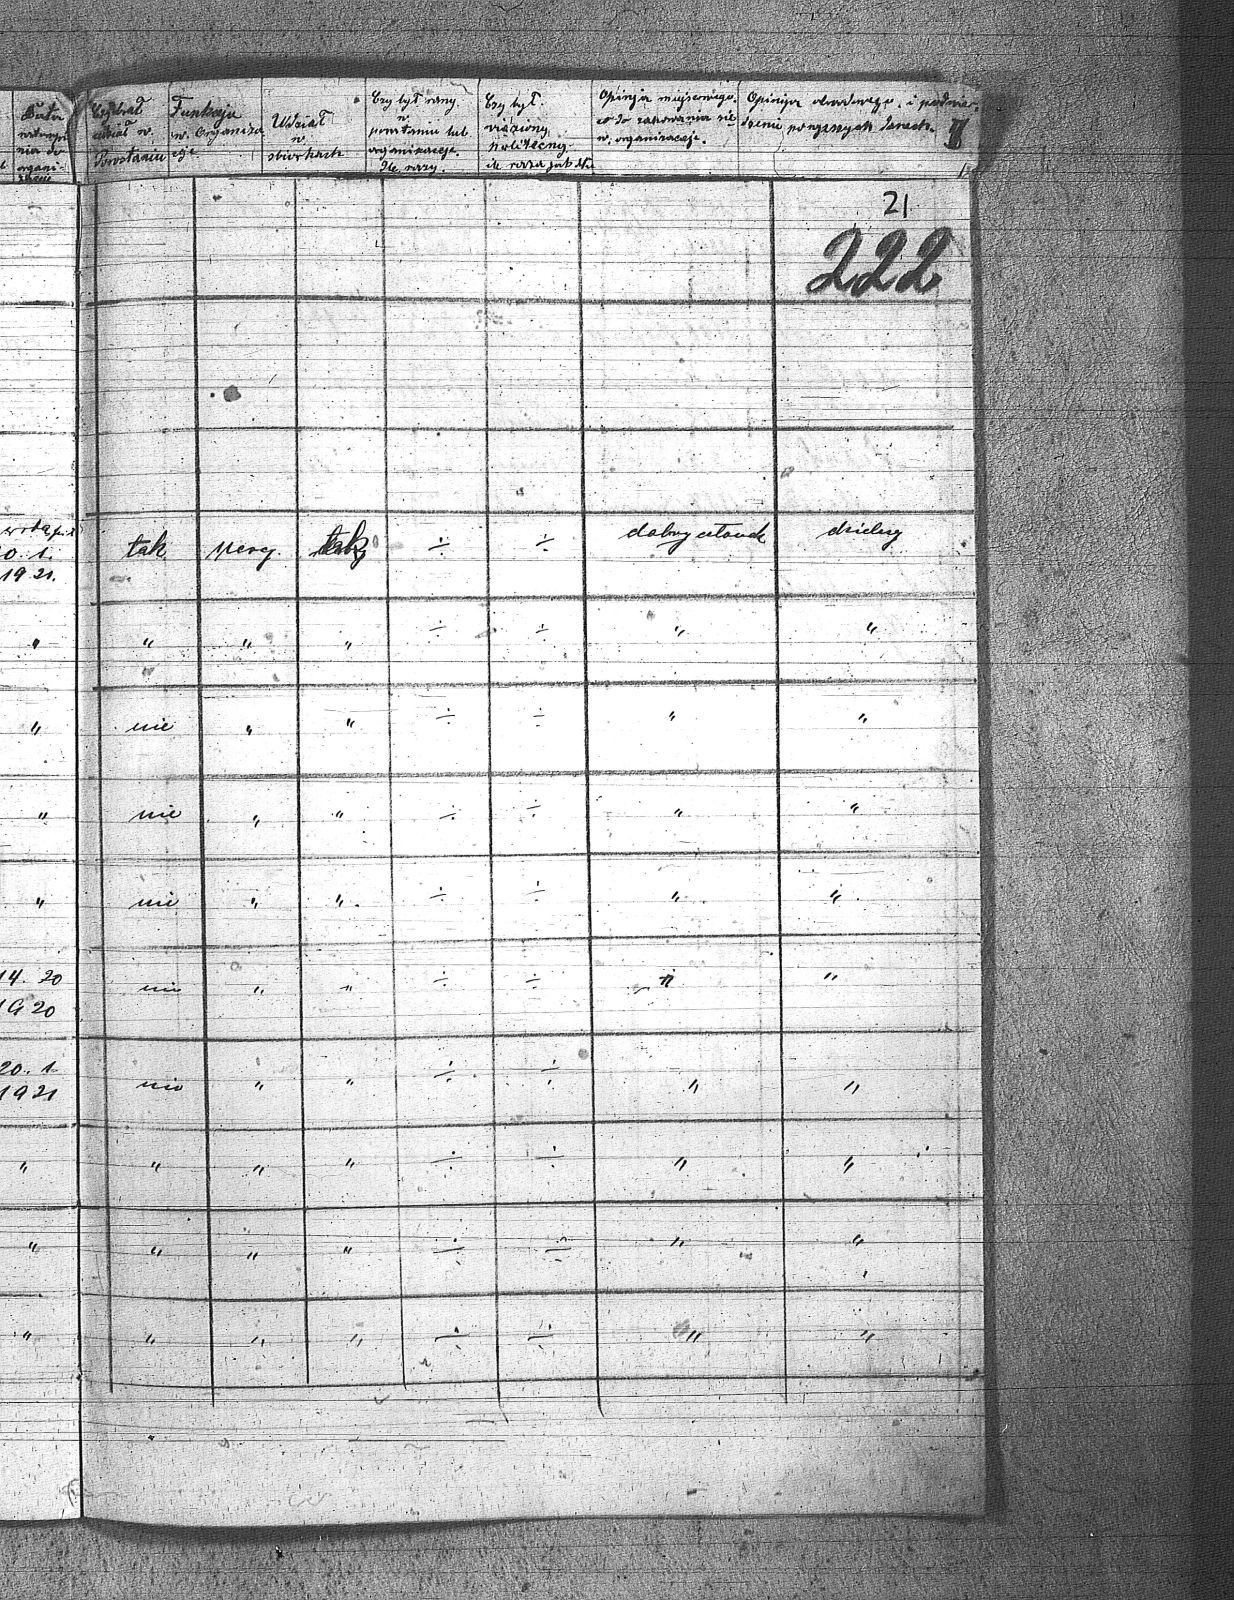 Data
Czy brał
udział w.
Powstaniu
Funkcja
w. Organiza
cji
Udział
w.
zbiorkach
Czy był ranny
w
powstaniu lub
organizacje.
Ile razy.
Czy był.
więziony
politeczny
ile razy jak dłu
Opinja miejscowego.
co do zachowania się
w. organizacje.
Opinja obwodowego. i
powyższych danech.
II
21
222
20. 1.
1921.
tak
szereg.
tak
÷
÷
dobry członek
dzielny
" " " " ÷ ÷ " "
" nie " " ÷ ÷ " "
" nie " " ÷ ÷ " "
" nie " " ÷ ÷ " "
14. 20
19 20
nie " " ÷ ÷ " "
20. 1
1921
nie " " ÷ ÷ " "
" " " " ÷ ÷ " "
" " " " ÷ ÷ " "
" " " " ÷ ÷ " "